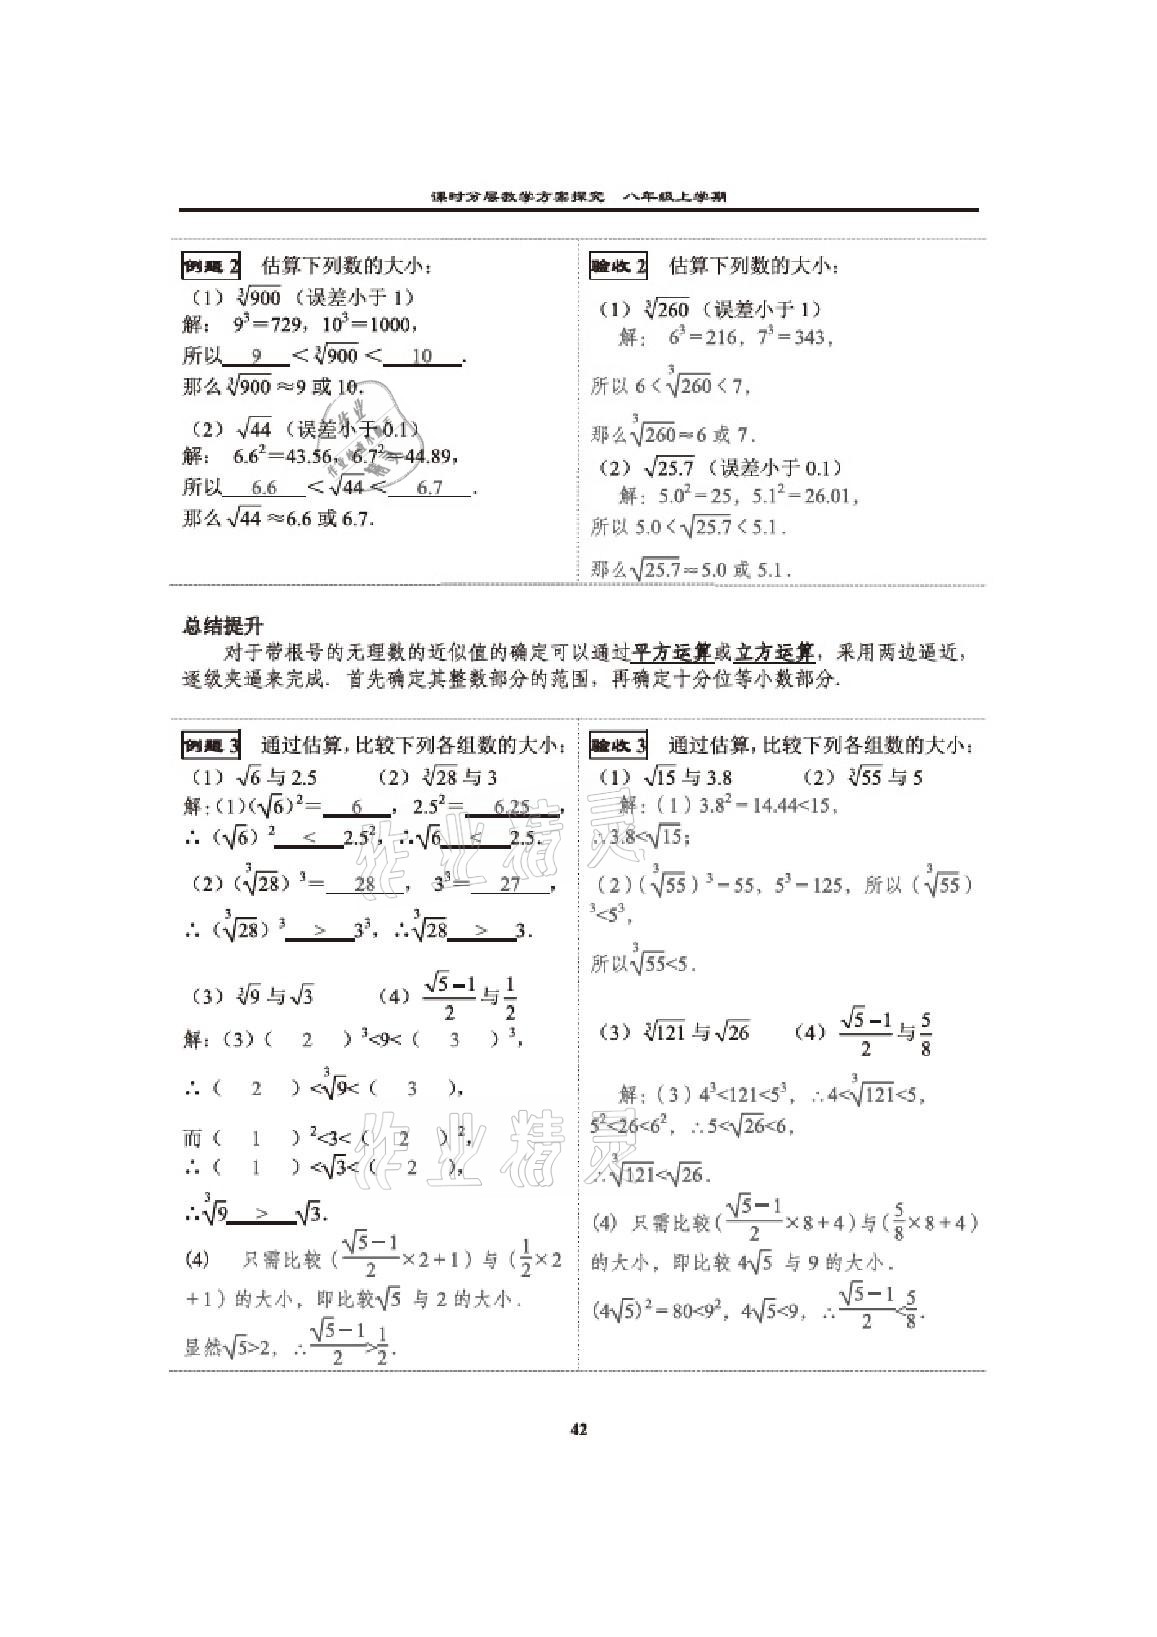 课时分层教学方案探究　八年级上学期
例题 2　估算下列数的大小：
（1）∛900（误差小于 1）
解：9³＝729，10³＝1000，
所以 9 ＜∛900＜ 10 .
那么∛900≈9 或 10.
（2）√44（误差小于 0.1）
解：6.6²＝43.56，6.7²＝44.89，
所以 6.6 ＜√44＜ 6.7 .
那么√44≈6.6 或 6.7.
验收 2　估算下列数的大小：
（1）∛260（误差小于 1）
解：6³＝216，7³＝343，
所以 6＜∛260＜7，
那么∛260≈6 或 7.
（2）√25.7（误差小于 0.1）
解：5.0²＝25，5.1²＝26.01，
所以 5.0＜√25.7＜5.1.
那么√25.7≈5.0 或 5.1.
总结提升
对于带根号的无理数的近似值的确定可以通过平方运算或立方运算，采用两边逼近，
逐级夹逼来完成. 首先确定其整数部分的范围，再确定十分位等小数部分.
例题 3　通过估算，比较下列各组数的大小：
（1）√6与 2.5　（2）∛28与 3
解：(1)(√6)²＝ 6 ，2.5²＝ 6.25 ，
∴（√6）² < 2.5²，∴√6 < 2.5.
（2）（∛28）³＝ 28 ，3³＝ 27 ，
∴（∛28）³ > 3³，∴∛28 > 3.
（3）∛9与√3　（4）(√5-1)/2与1/2
解：（3）（ 2 ）³<9<（ 3 ）³，
∴（ 2 ）<∛9<（ 3 ），
而（ 1 ）²<3<（ 2 ）²，
∴（ 1 ）<√3<（ 2 ），
∴∛9 > √3.
(4)　只需比较（(√5-1)/2×2+1）与（1/2×2
+1）的大小，即比较√5 与 2 的大小.
显然√5>2，∴(√5-1)/2>1/2.
验收 3　通过估算，比较下列各组数的大小：
（1）√15与 3.8　（2）∛55与 5
解：（1）3.8²＝14.44<15，
∴3.8<√15；
（2）（∛55）³＝55，5³＝125，所以（∛55）
³<5³，
所以∛55<5.
（3）∛121与√26　（4）(√5-1)/2与5/8
解：（3）4³<121<5³，∴4<∛121<5，
5²<26<6²，∴5<√26<6，
∴∛121<√26.
(4) 只需比较（(√5-1)/2×8+4）与（5/8×8+4）
的大小，即比较 4√5 与 9 的大小.
(4√5)²＝80<9²，4√5<9，∴(√5-1)/2<5/8.
42
作业精灵
作业精灵